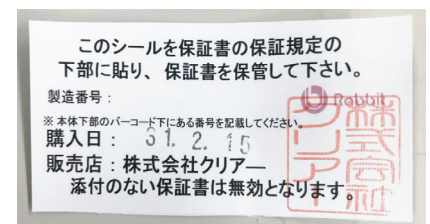 このシールを保証書の保証規定の
下部に貼り、保証書を保管して下さい。
製造番号：
Rabbit
※ 本体下部のバーコード下にある番号を記載してください。
購入日： 31. 2. 15
販売店：株式会社クリアー
添付のない保証書は無効となります。
株式会社
クリアー